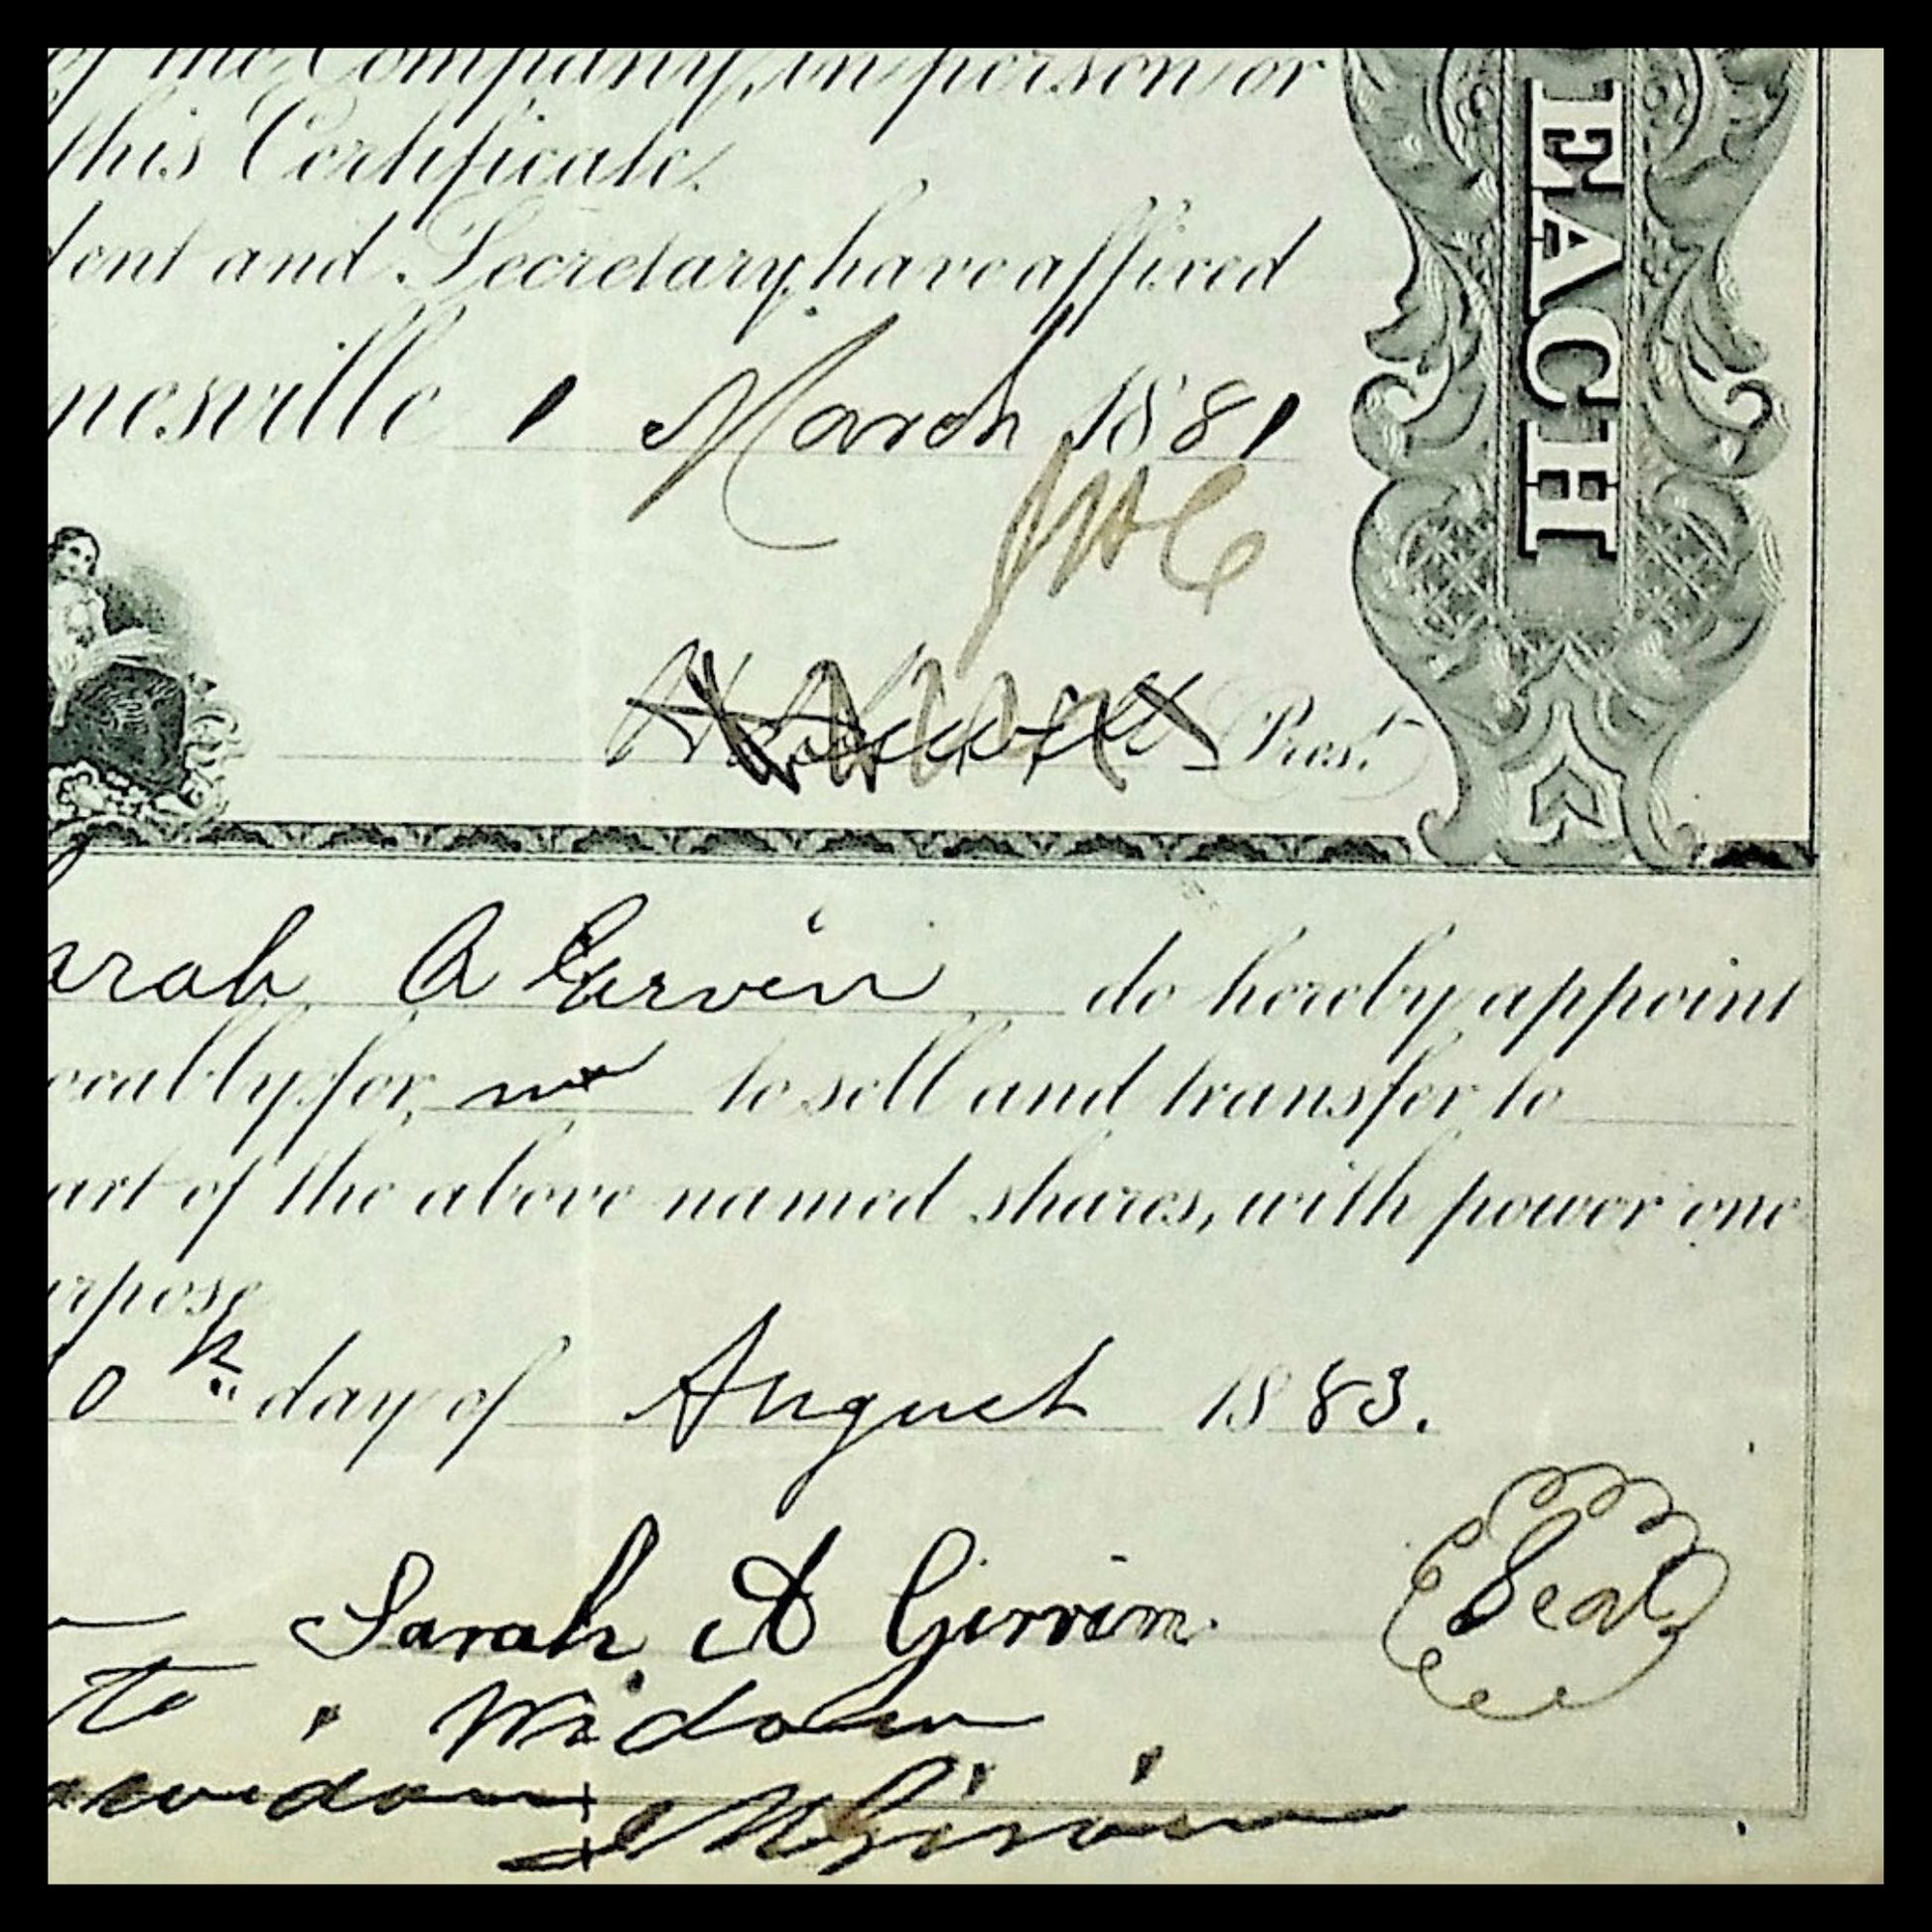 of the Company, in person or
this Certificate.
dent and Secretary, have affixed
nesville 1 March 1881
Prest
EACH
arah A Garvin do hereby appoint
ocably for me to sell and transfer to
art of the above named shares, with power one
urpose
10th day of August 1883.
Sarah A Girvin
Seal
to Widow
widow Girvin